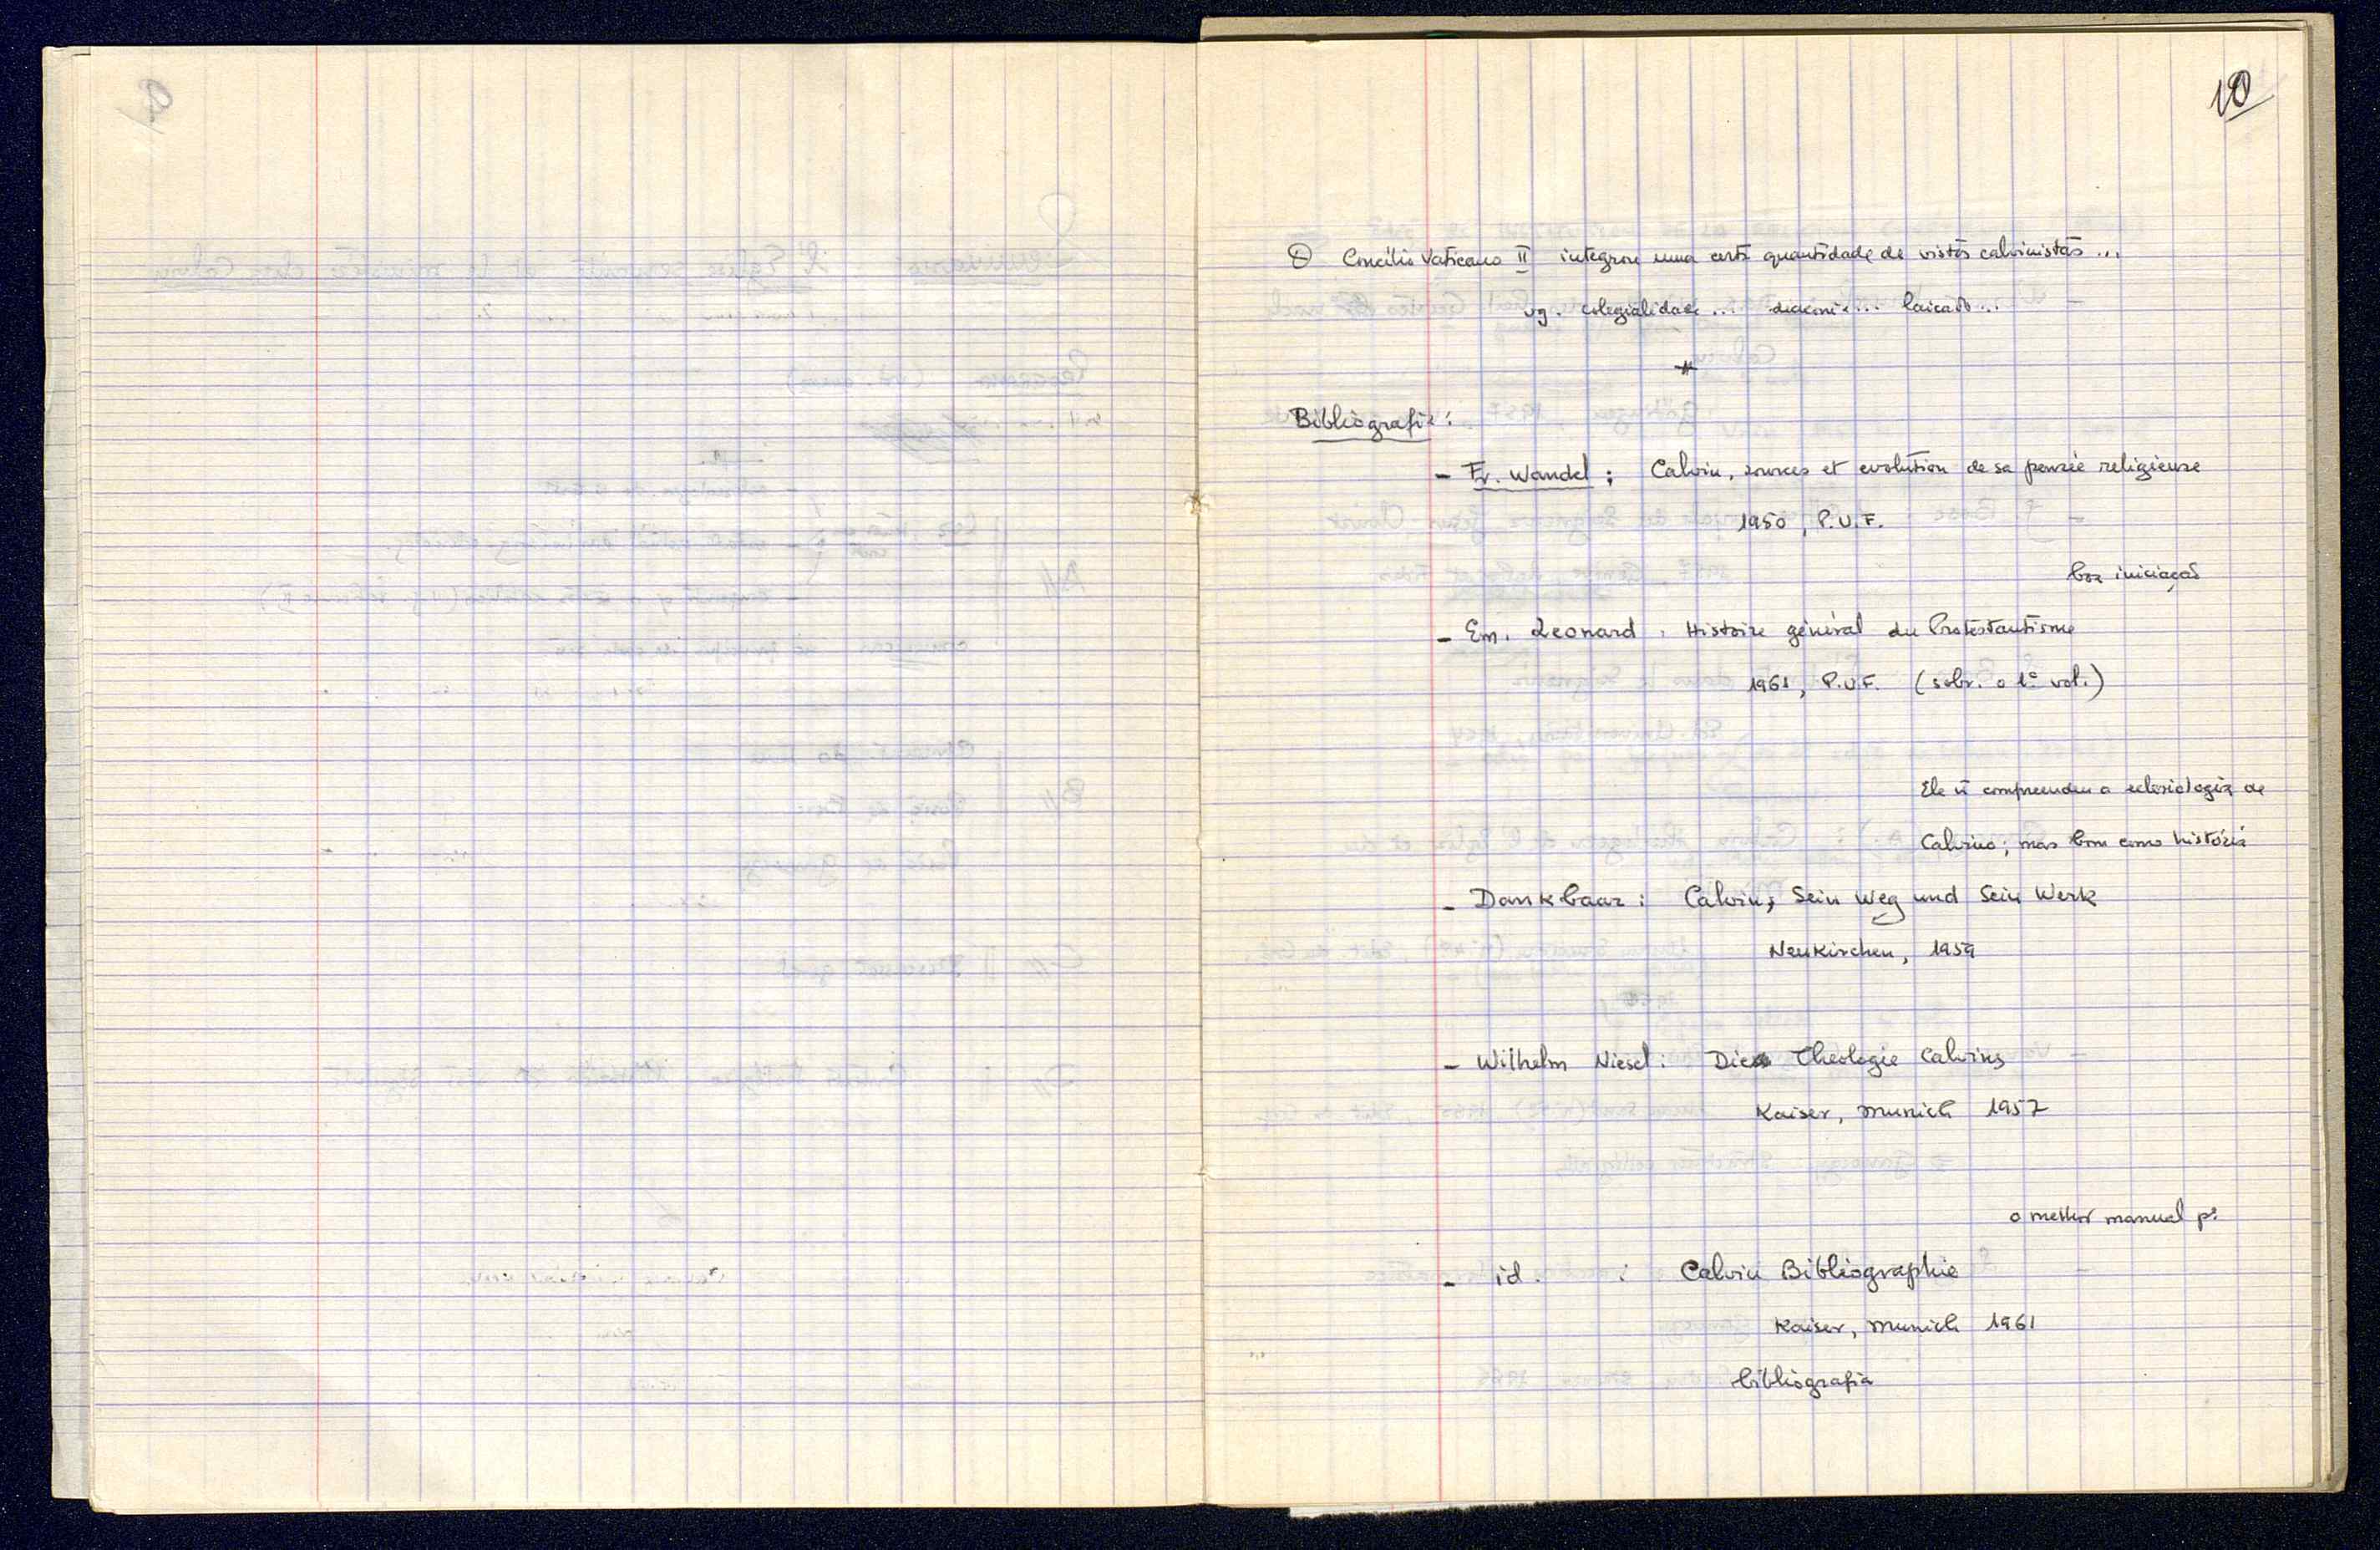 10
O Concílio Vaticano II integrou uma certa quantidade de vistas calvinistas ...
vg. colegialidade ... diaconia ... laicado ...
Bibliografia:
- Fr. Wandel : Calvin, sources et evolution de sa pensée religieuse
1950, P.U.F.
boa iniciação
- Em. Leonard : Histoire général du Protestantisme
1961, P.U.F. (sobr. o 1º vol.)
Ele ñ compreendeu a eclesiologia de
Calvino; mas bom como história
- Dankbaar : Calvin, Sein Weg und Sein Werk
Neukirchen, 1959
- Wilhelm Niesel : Die Theologie Calvins
Kaiser, Munich 1957
o melhor manual p.
- id. : Calvin Bibliographie
Kaiser, Munich 1961
bibliografia